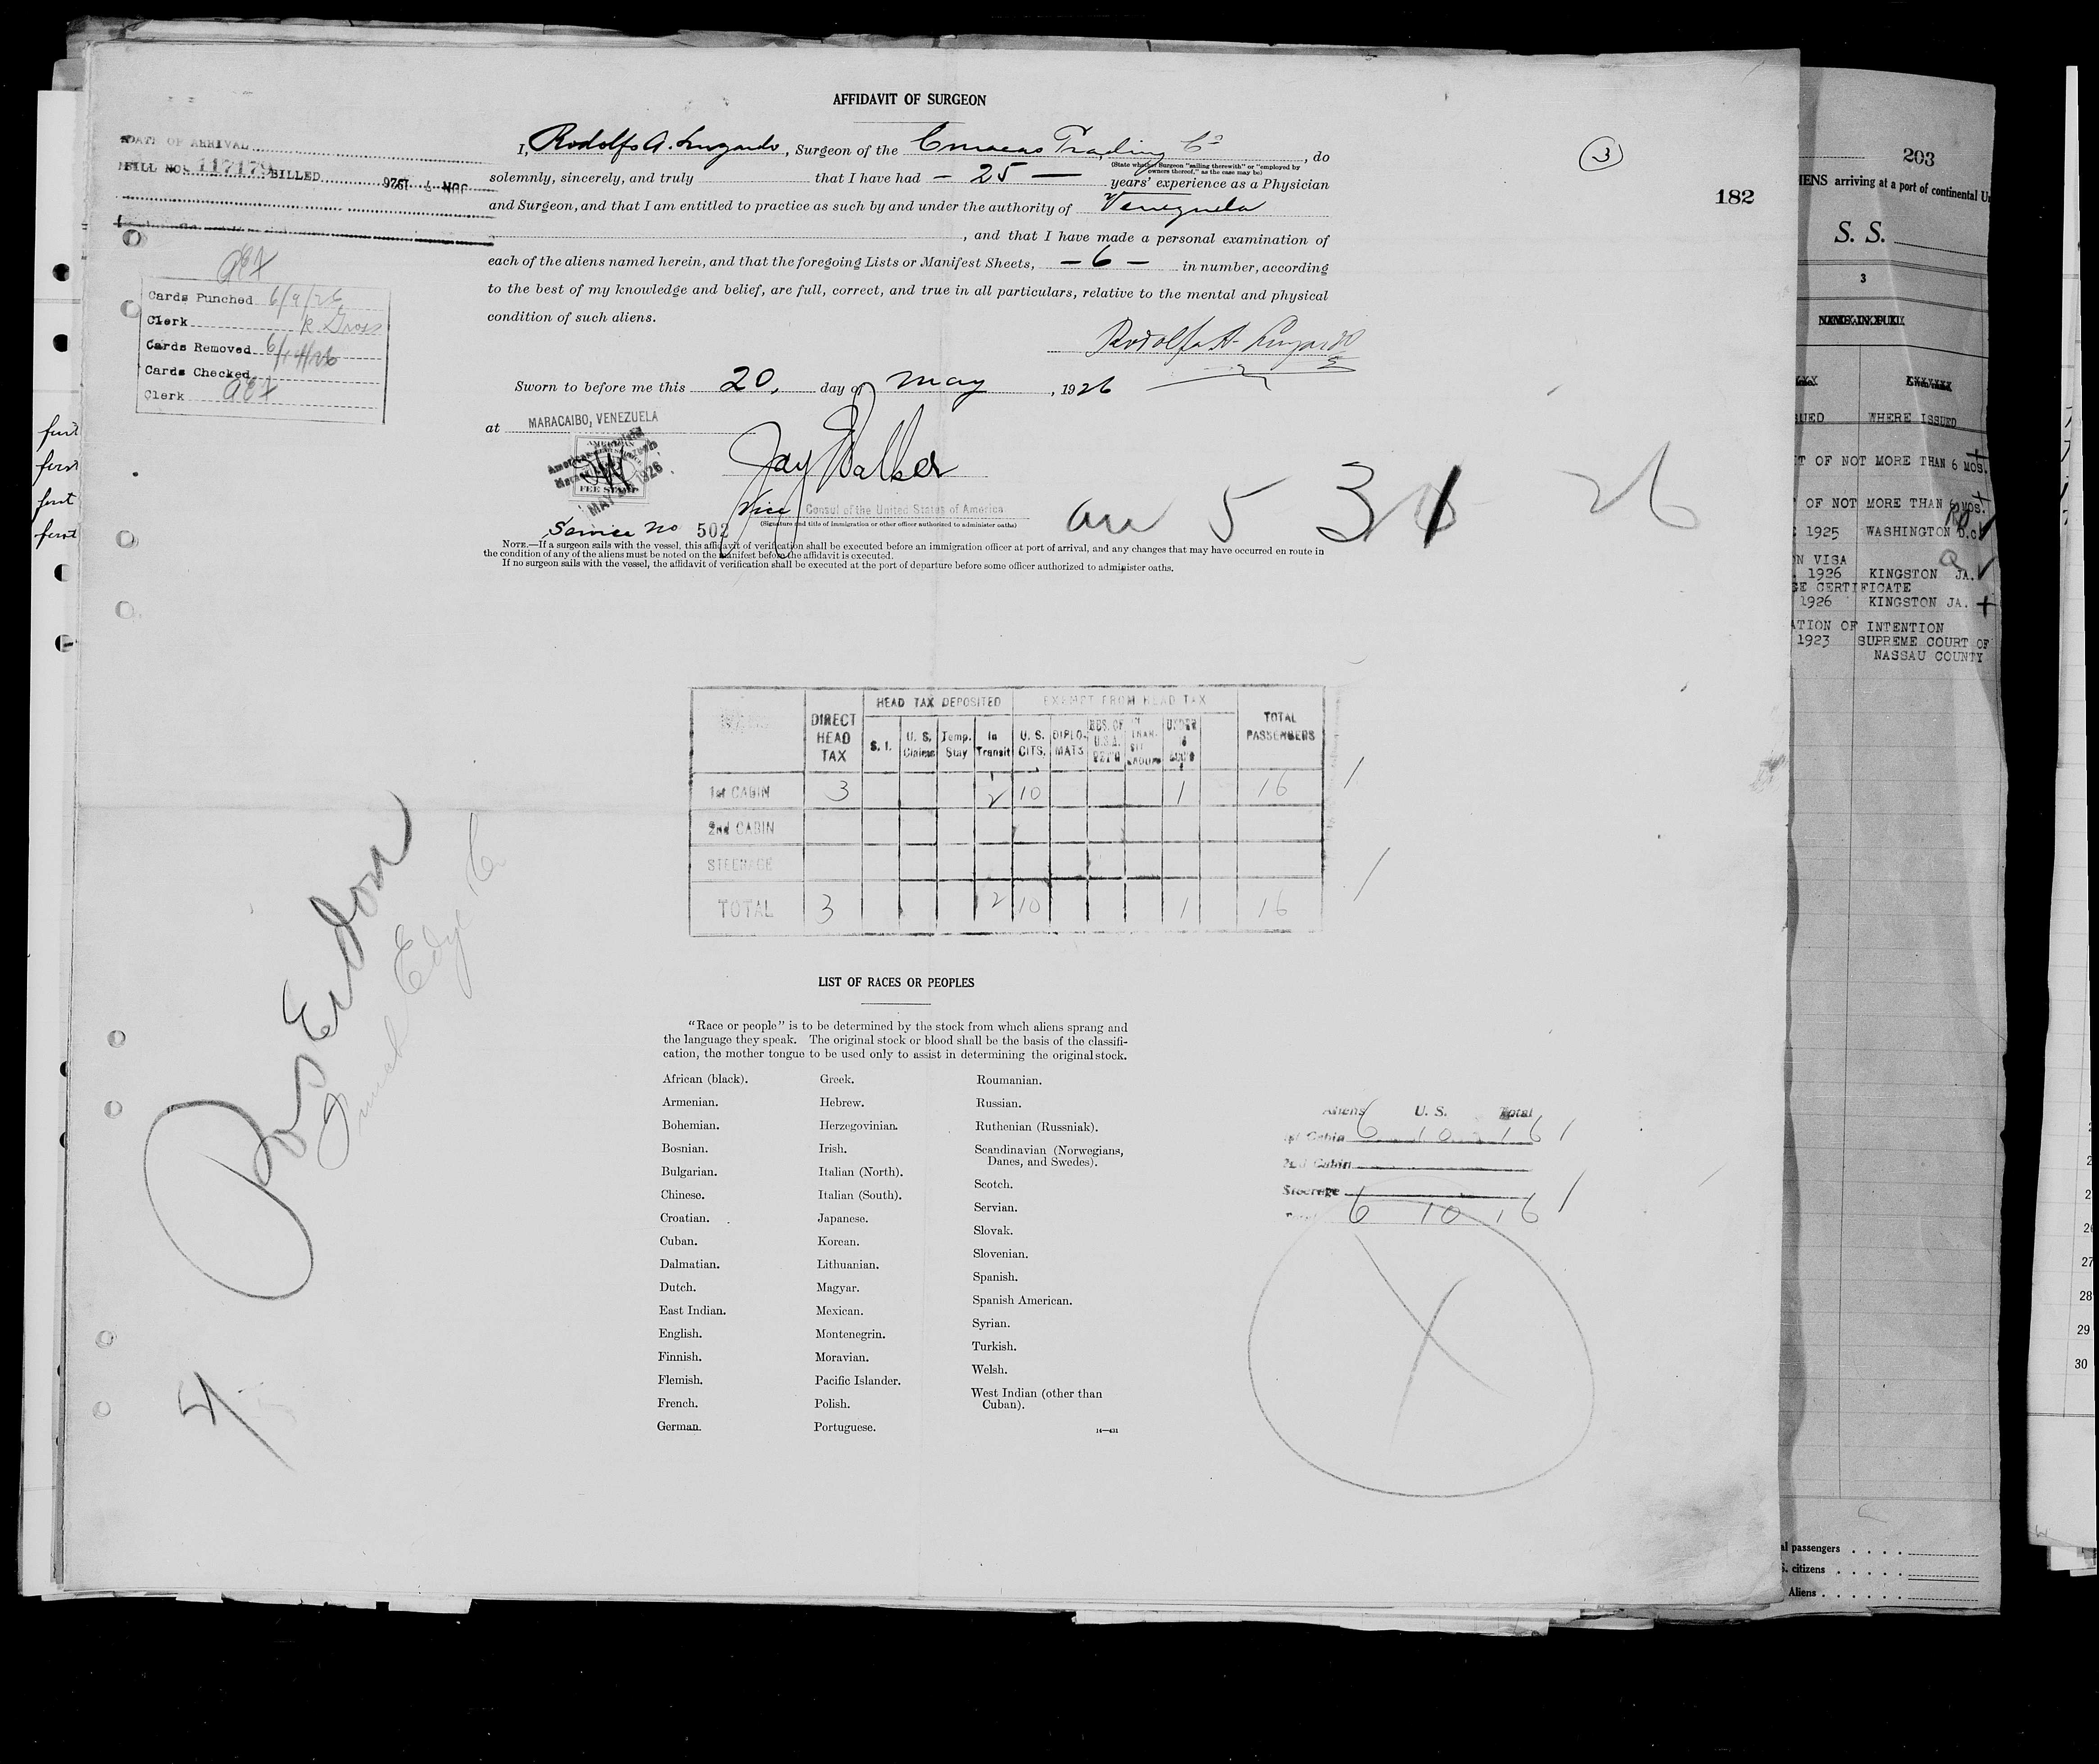 AFFIDAVIT OF SURGEON
DATE OF ARRIVAL
BILL NO. 117179 BILLED JUN 4 1926
I, Rodolfo A. Luzardo, Surgeon of the Curacao Trading Co, do
(State whether Surgeon "sailing therewith" or "employed by
owners thereof," as the case may be)
solemnly, sincerely, and truly that I have had - 25 - years' experience as a Physician
and Surgeon, and that I am entitled to practice as such by and under the authority of Venezuela
, and that I have made a personal examination of
each of the aliens named herein, and that the foregoing Lists or Manifest Sheets, - 6 - in number, according
to the best of my knowledge and belief, are full, correct, and true in all particulars, relative to the mental and physical
condition of such aliens.
Rodolfo A. Luzardo
Sworn to before me this 20, day of May, 1926
at MARACAIBO, VENEZUELA
Jay Walker
Vice Consul of the United States of America
(Signature and title of immigration or other officer authorized to administer oaths)
AMERICAN
FEE STAMP
MAY 1926
Service No 502
NOTE.—If a surgeon sails with the vessel, this affidavit of verification shall be executed before an immigration officer at port of arrival, and any changes that may have occurred en route in
the condition of any of the aliens must be noted on the manifest before the affidavit is executed.
If no surgeon sails with the vessel, the affidavit of verification shall be executed at the port of departure before some officer authorized to administer oaths.
3
182
Cards Punched 6/9/26
Clerk R. Gross
Cards Removed 6/14/26
Cards Checked
Clerk
5 31 26
DIRECT HEAD TAX
HEAD TAX DEPOSITED
EXEMPT FROM HEAD TAX
TOTAL PASSENGERS
S. I. U. S. Citizens Temp. Stay In Transit U. S. CITS. DIPLO-MATS
1st CABIN 3 2 10 1 16 1
2nd CABIN
STEERAGE
TOTAL 3 2 10 1 16 1
LIST OF RACES OR PEOPLES
"Race or people" is to be determined by the stock from which aliens sprang and
the language they speak. The original stock or blood shall be the basis of the classifi-
cation, the mother tongue to be used only to assist in determining the original stock.
African (black).
Armenian.
Bohemian.
Bosnian.
Bulgarian.
Chinese.
Croatian.
Cuban.
Dalmatian.
Dutch.
East Indian.
English.
Finnish.
Flemish.
French.
German.
Greek.
Hebrew.
Herzegovinian.
Irish.
Italian (North).
Italian (South).
Japanese.
Korean.
Lithuanian.
Magyar.
Mexican.
Montenegrin.
Moravian.
Pacific Islander.
Polish.
Portuguese.
Roumanian.
Russian.
Ruthenian (Russniak).
Scandinavian (Norwegians,
Danes, and Swedes).
Scotch.
Servian.
Slovak.
Slovenian.
Spanish.
Spanish American.
Syrian.
Turkish.
Welsh.
West Indian (other than
Cuban).
14—431
Aliens U. S. Total
1st Cabin 6 10 16 1
2nd Cabin
Steerage
Total 6 10 16 1
X
203
arriving at a port of continental
S. S.
3
WHERE ISSUED
OF NOT MORE THAN 6 MOS.
OF NOT MORE THAN 6 MOS.
1925 WASHINGTON D.C.
VISA
1926 KINGSTON JA.
CERTIFICATE
1926 KINGSTON JA.
OF INTENTION
1923 SUPREME COURT OF
NASSAU COUNTY
passengers
citizens
Aliens
27
28
29
30